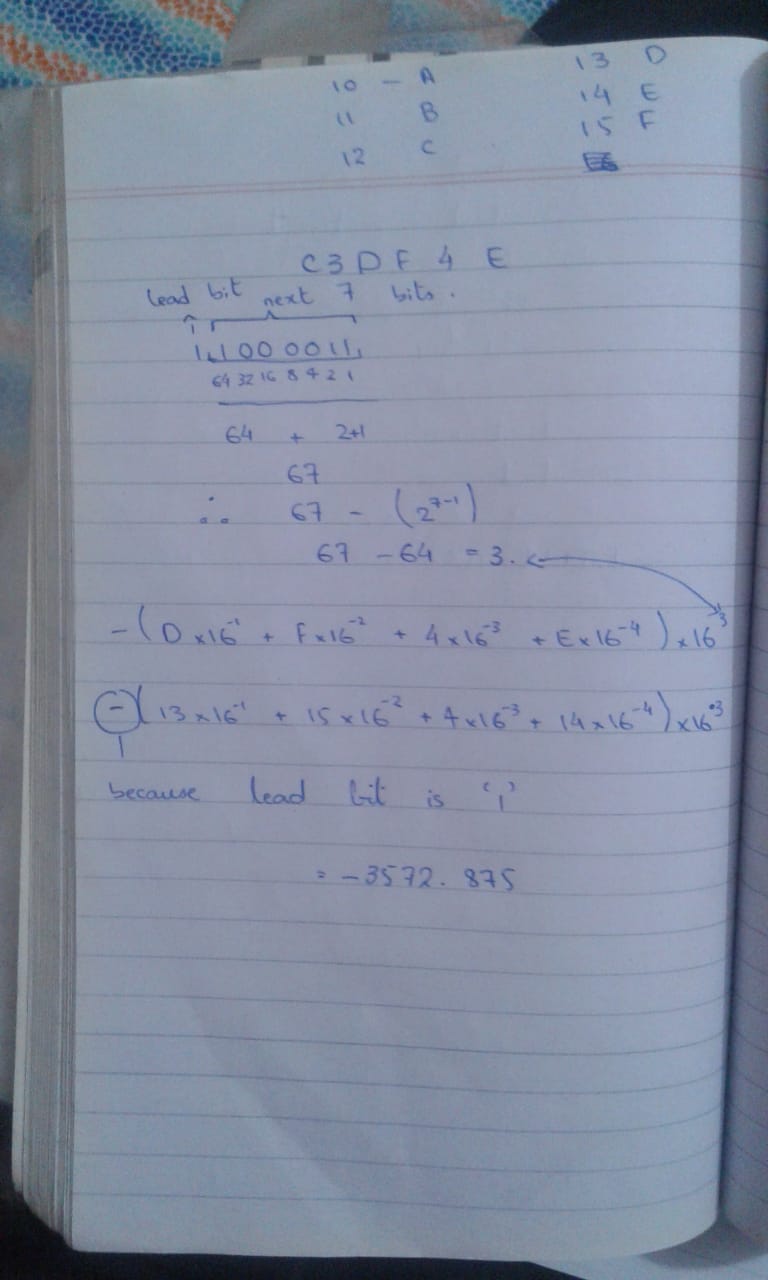 10 – A 13 D
11 B 14 E
12 C 15 F
C3DF4E
lead bit next 7 bits.
1 1000011
64 32 16 8 4 2 1
64 + 2+1
67
∴ 67 - (2⁷⁻¹)
67 - 64 = 3.
-(D×16⁻¹ + F×16⁻² + 4×16⁻³ + E×16⁻⁴)×16³
-(13×16⁻¹ + 15×16⁻² + 4×16⁻³ + 14×16⁻⁴)×16³
because lead bit is '1'
= -3572.875